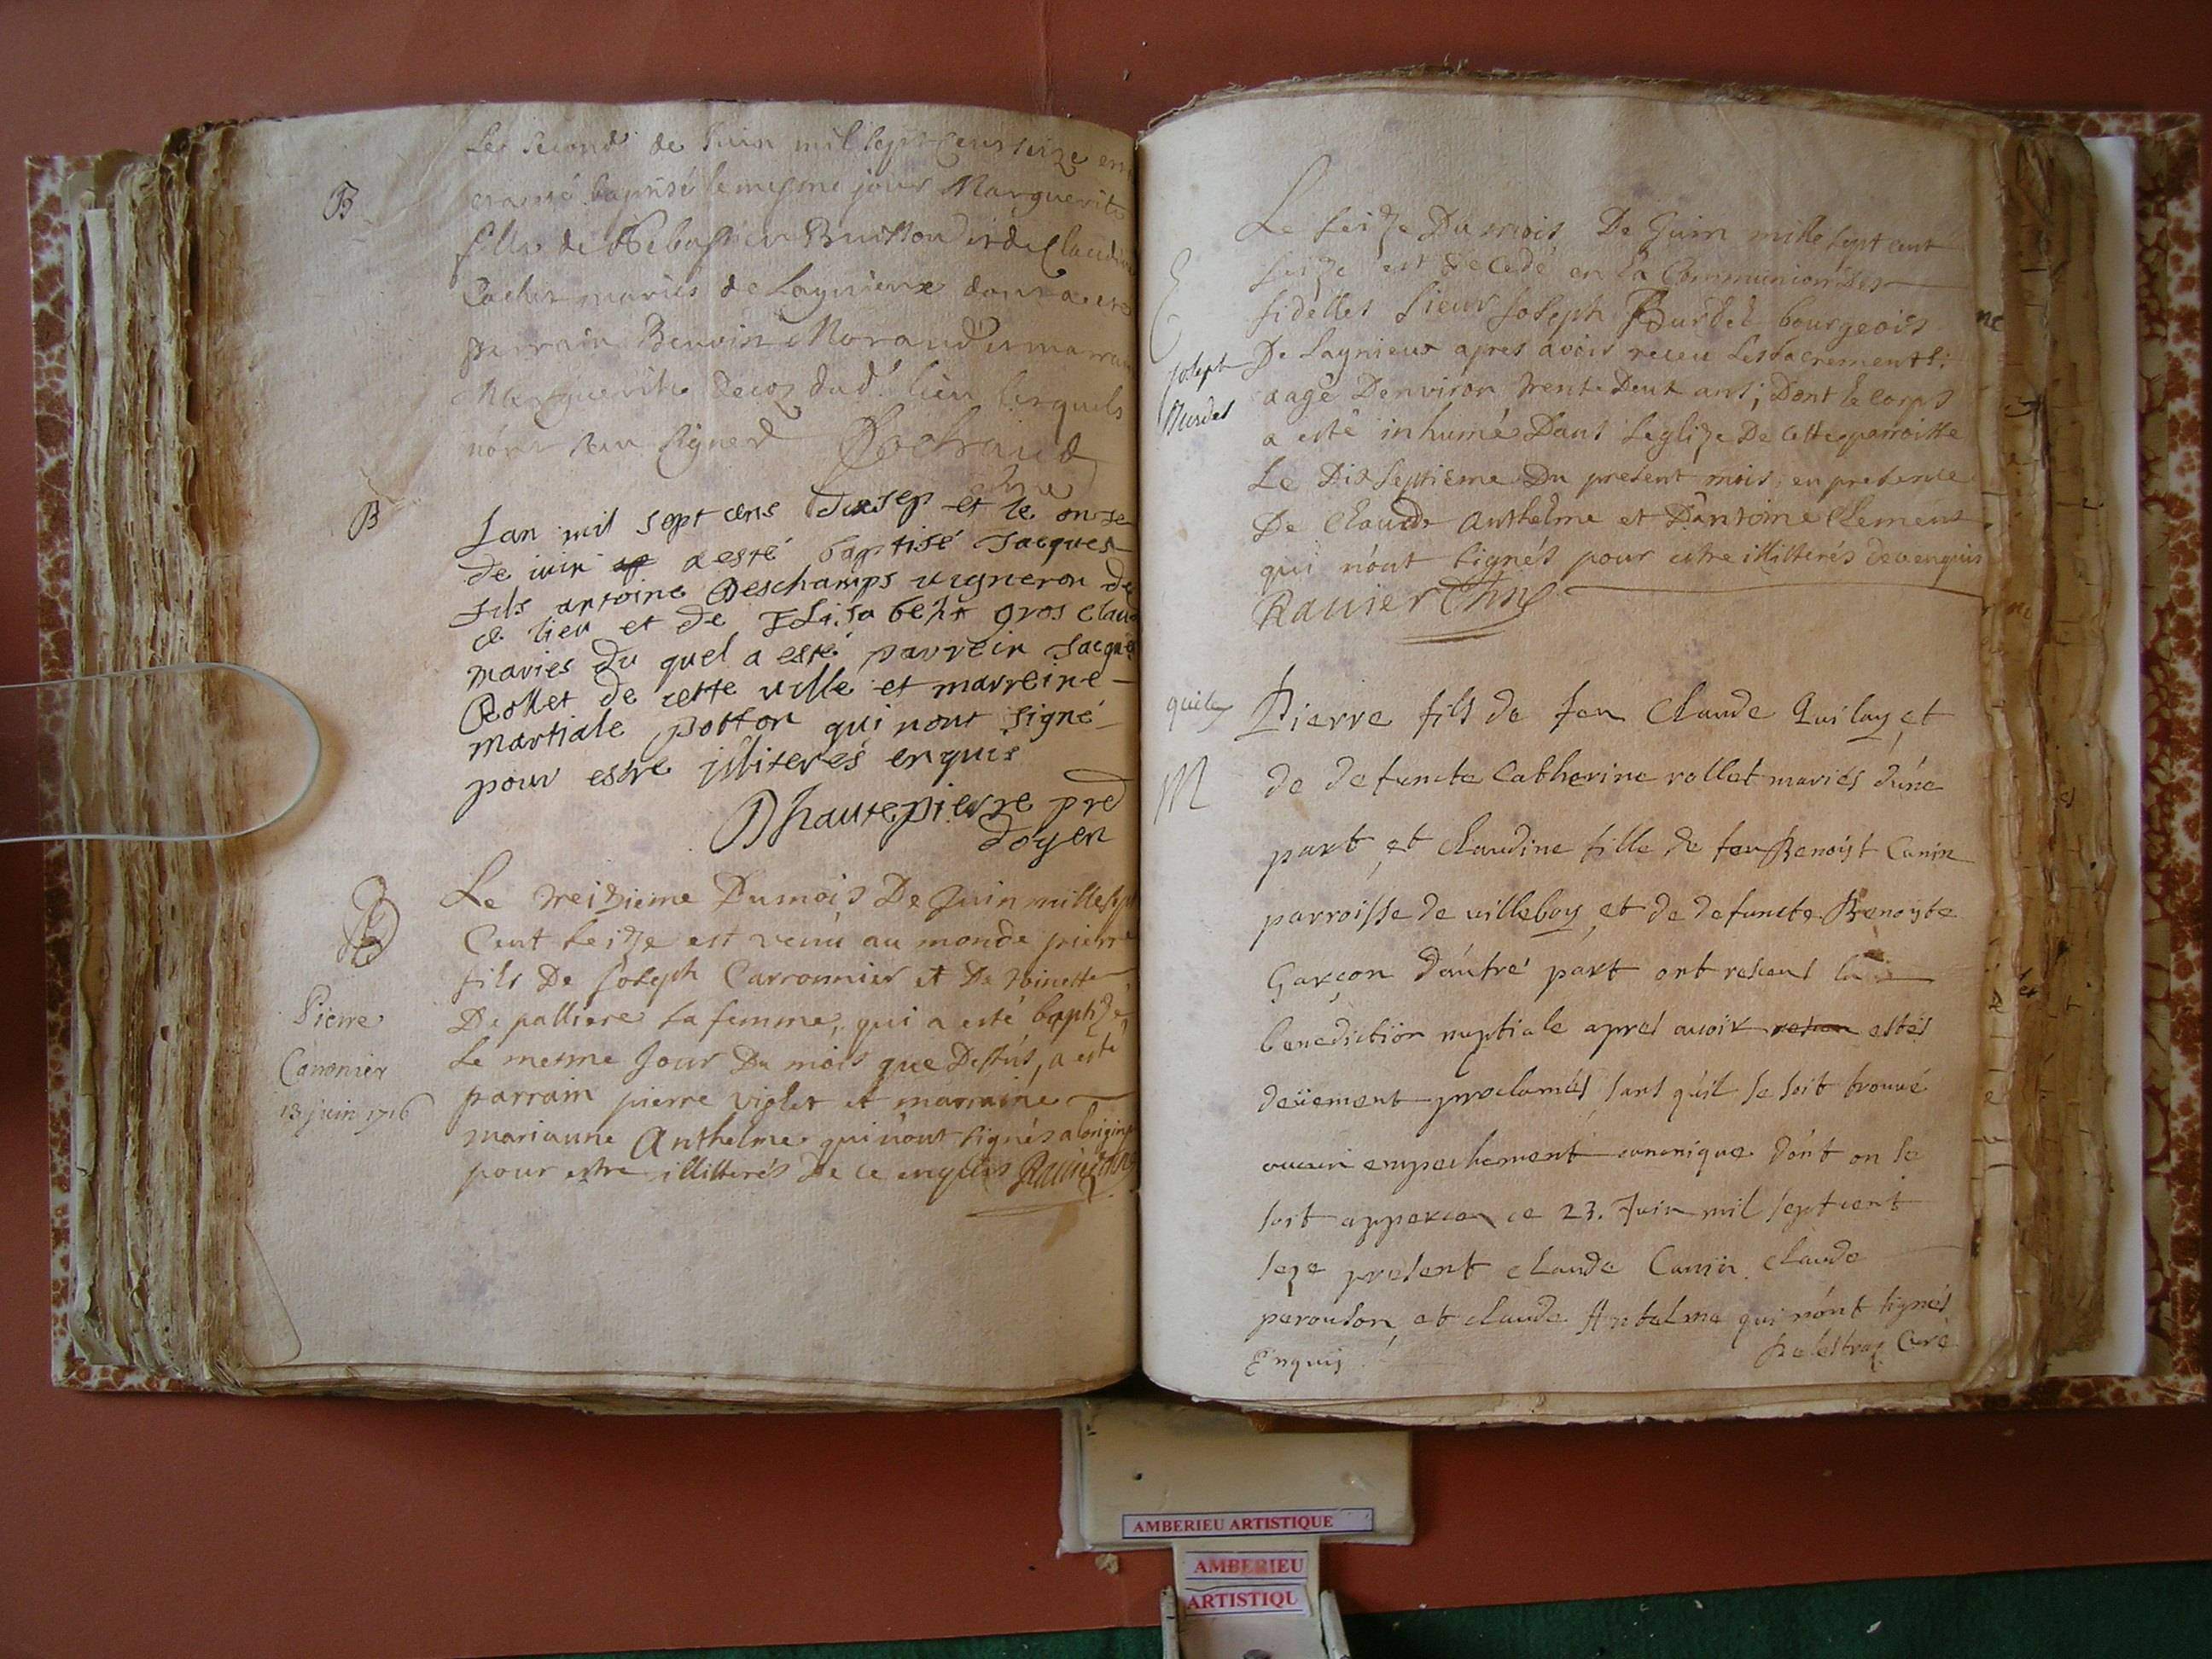 B
Le second de Juin mil sept cens seize
esté baptisé le mesme jour Marguerite
fille de Sebastien Buisson et de Claudine
mariés de Lagnieux dont a esté
parrain Benoist Morand et
Marguerite dud. lieu lesquels
n'ont sceu signer
B
Lan mil sept cens et le onse
de iuin a esté baptisé Jacques
fils antoine Deschamps vigneron de
ce lieu et de Elisabeht gros claud
maries du quel a esté parrein Jacques
Rollet de cette ville et marreine
martiale potton qui nont signé
pour estre illiterés enquis
Dhautepierre pre
doyen
B
Pierre
Caronier
13 juin 1716
Le treizieme Du mois De Juin mille sept
Cent seize est venu au monde pierre
fils De Joseph Carronnier et De toinette
De palliere sa femme, qui a esté baptizé
Le mesme Jour Du mois que Dessus, a esté
parrain pierre violet et marraine
marianne Anthelme qui n'ont signés
pour estre illitterés De ce enquis Ravier
E
Joseph
Burdet
Le seize Du mois De Juin mille sept cent
seize est Decedé en la Communion Des
fidelles sieur Joseph Burdet bourgeois
De Lagnieux apres avoir receu les sacrements;
aagé Denviron trente Deux ans; Dont le corps
a esté inhumé Dans Leglize De cette parroisse
Le Dixseptieme Du present mois, en presence
De Claude Anthelme et D'antoine Clement
qui n'ont signés pour estre illitterés de ce enquis
Ravier
quilly
M
Pierre fils de feu Claude Quilay, et
de defuncte Catherine rollet mariés d'une
part, et claudine fille de feu Benoist Cunin
parroisse de villeboy, et de defuncte Benoyte
Garçon d'autre part ont receus la
benediction nuptiale apres avoir estés
deüement proclamés sans qu'il se soit trouvé
aucun empechement canonique dont on se
soit apperceu ce 23. Juin mil sept cent
seze present claude Cunin. claude
perouson, et claude Antelme qui n'ont signés
Enquis.
Curé
AMBERIEU ARTISTIQUE
AMBERIEU
ARTISTIQU